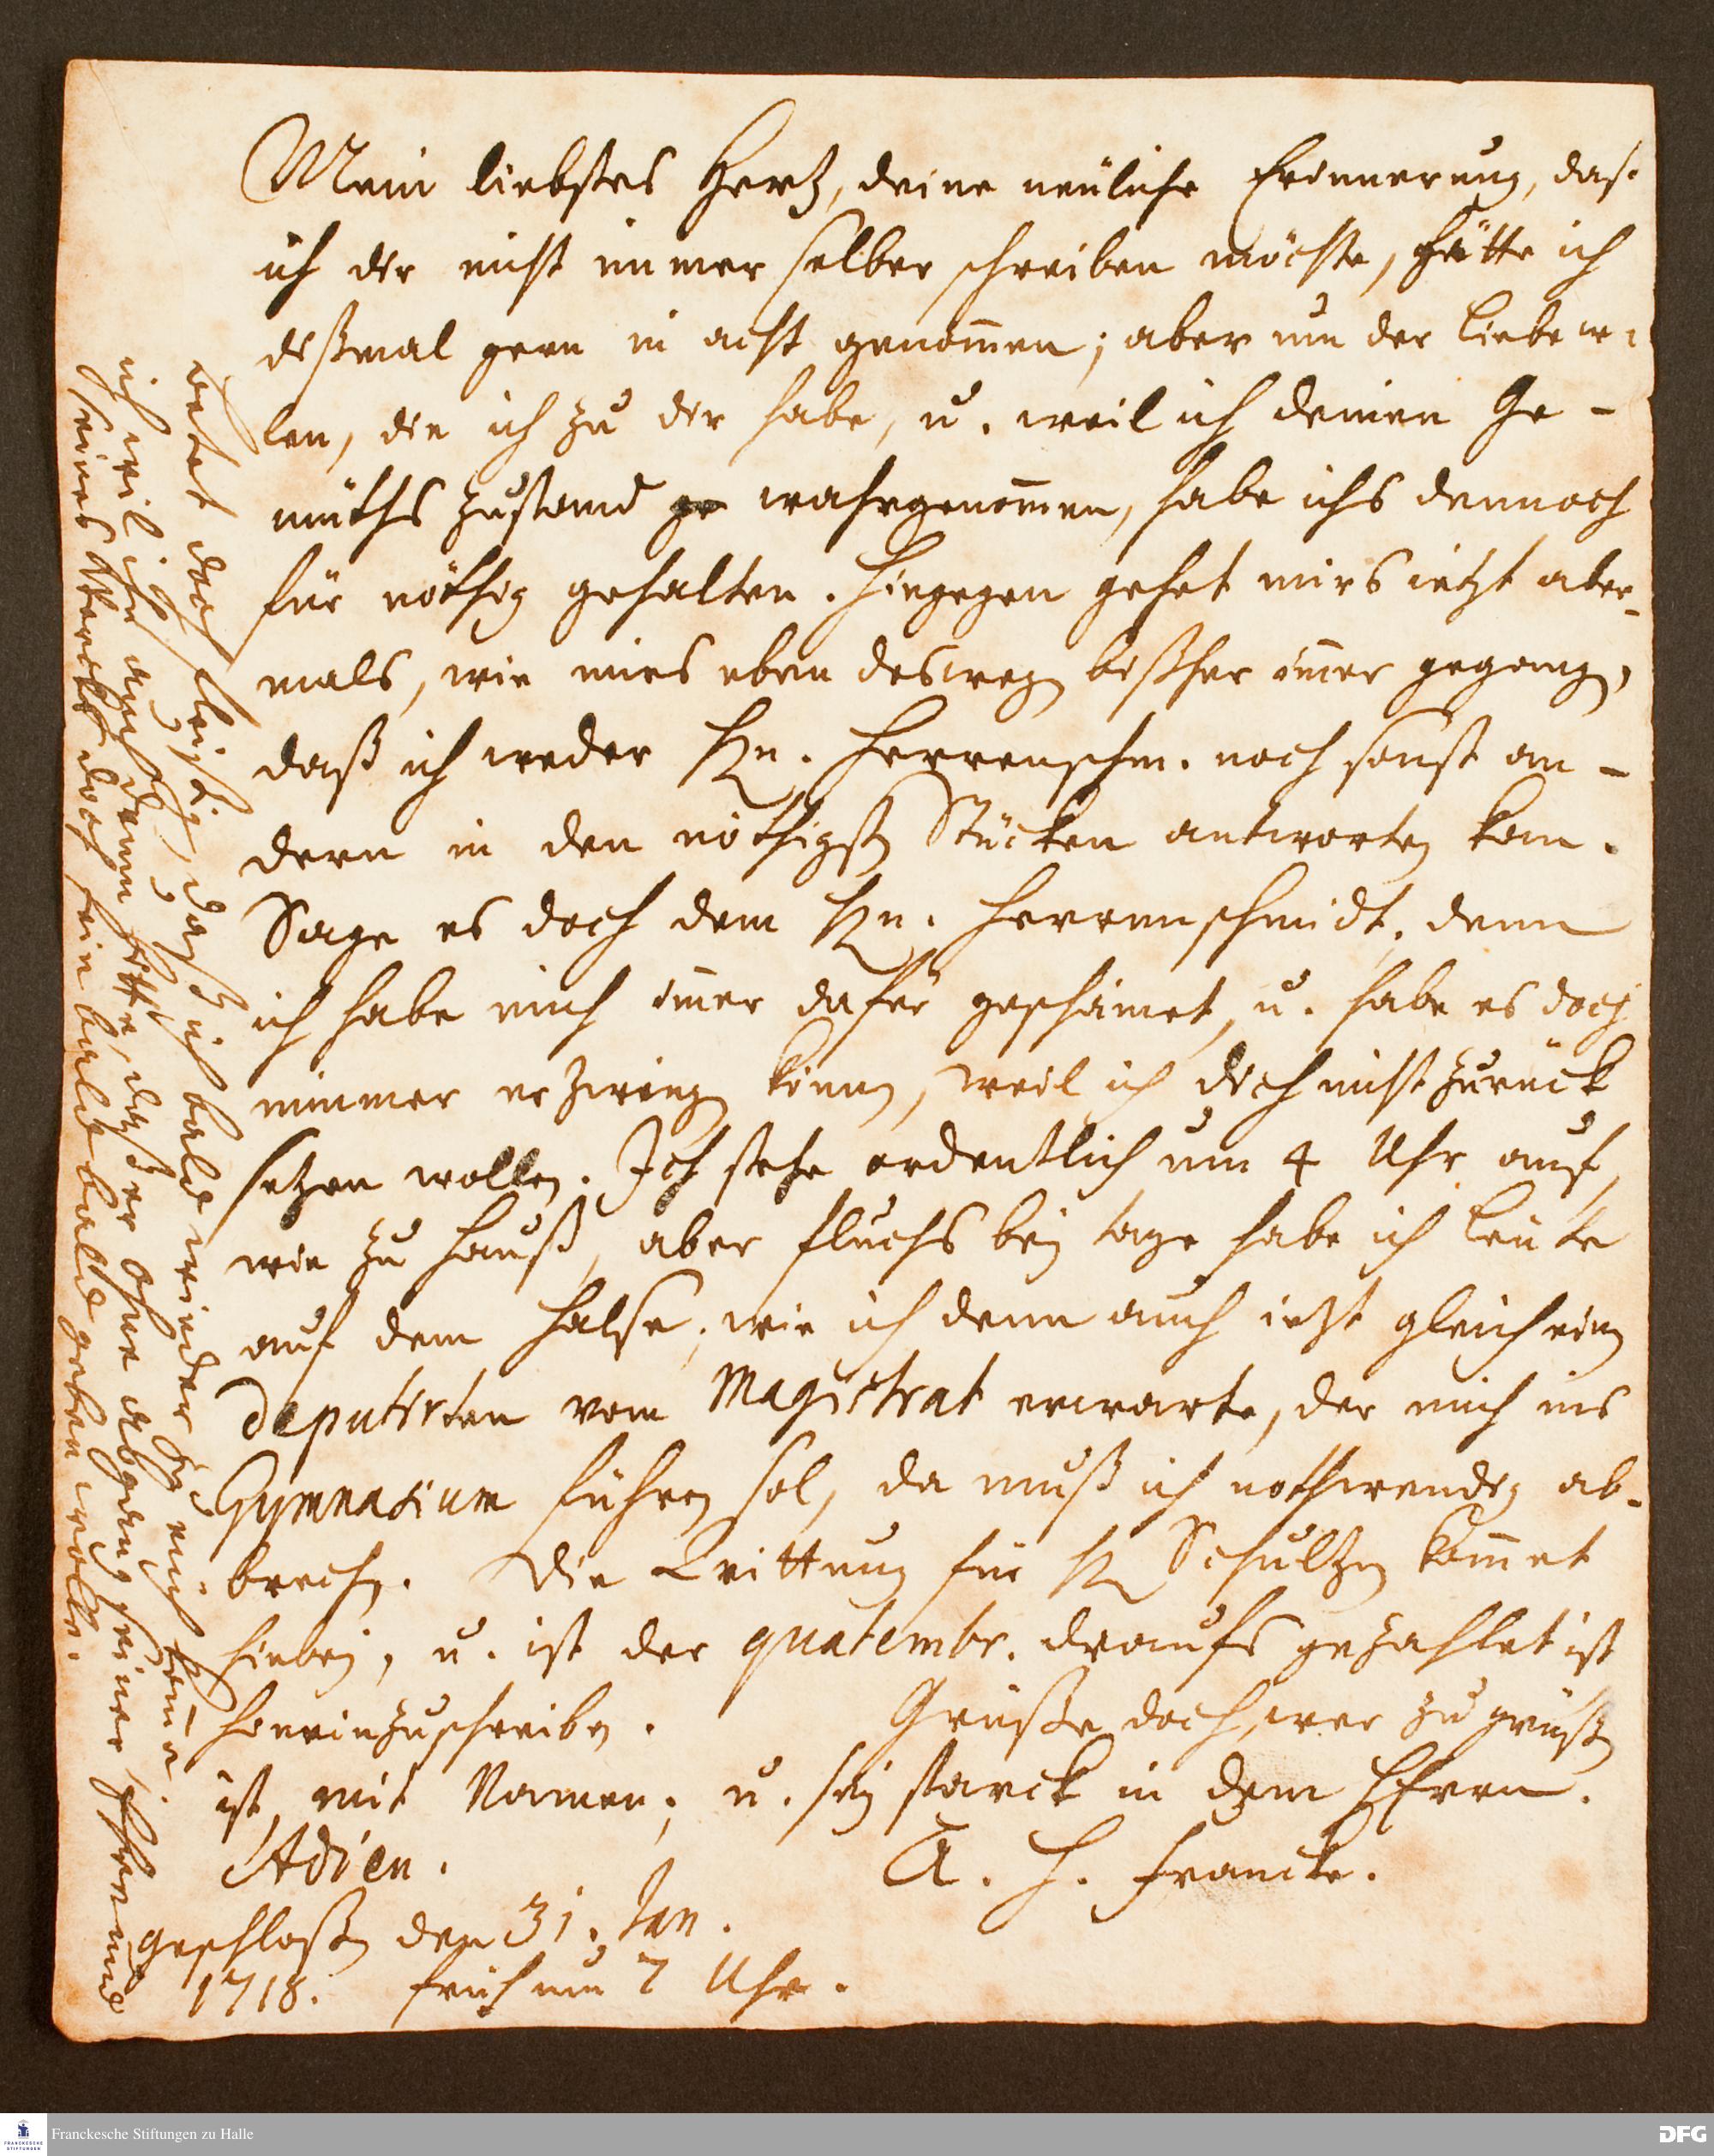 Mein liebstes Hertz, deine neuliche Erinnerung, daß
ich dir nicht immer selber schreiben möchte, hätte ich
dißmal gern in acht genom̄en; aber um der Liebe wil¬
len, die ich zu dir habe, u. weil ich deinen Ge-
müths zustand wahrgenom̄en, habe ichs dennoch
für nöthig gehalten. Hingegen gehet mirs ietzt aber-
mals, wie mirs eben deswegen bißher im̄er gegangen,
daß ich weder Hn. Herrenschm. noch sonst an-
dern in den nöthigsten Stücken antworten kan.
Sage es doch dem Hn. Herrenschmidt, denn
ich habe mich im̄er dafür geschämet, u. habe es doch
nimmer erzwingen können, weil ich dich nicht zurück
setzen wollen. Ich stehe ordentlich um 4 Uhr auf,
wie zu Hauß, aber fluchs bey tage habe ich Leute
auf dem Halse, wie ich denn auch ietzt gleich einen
Deputirten vom Magistrat erwarte, der mich ins
Gymnasium führen sol, da muß ich nothwendig ab-
brechen. Die Qvittung für H Schultzen kom̄et
hiebey, u. ist der quatembr. drauf gezahlet ist
hineinzuschreiben. Grüße doch, wer zu grüßen
ist, mit Namen, u. sey starck in dem HErrn.
Adieu. A. H. Francke.
geschloßen den 31. Jan.
1718. früh um 7 Uhr.
Betet doch fleißig, daß ich bald wieder zu euch kom̄e
ich wil ihn auch darum bitte, daß er ohne abgang seiner ihrem und
seines Wercks doch fein bald bald geben wolle.
Franckesche Stiftungen zu Halle
FRANCKESCHE
STIFTUNGEN
DFG